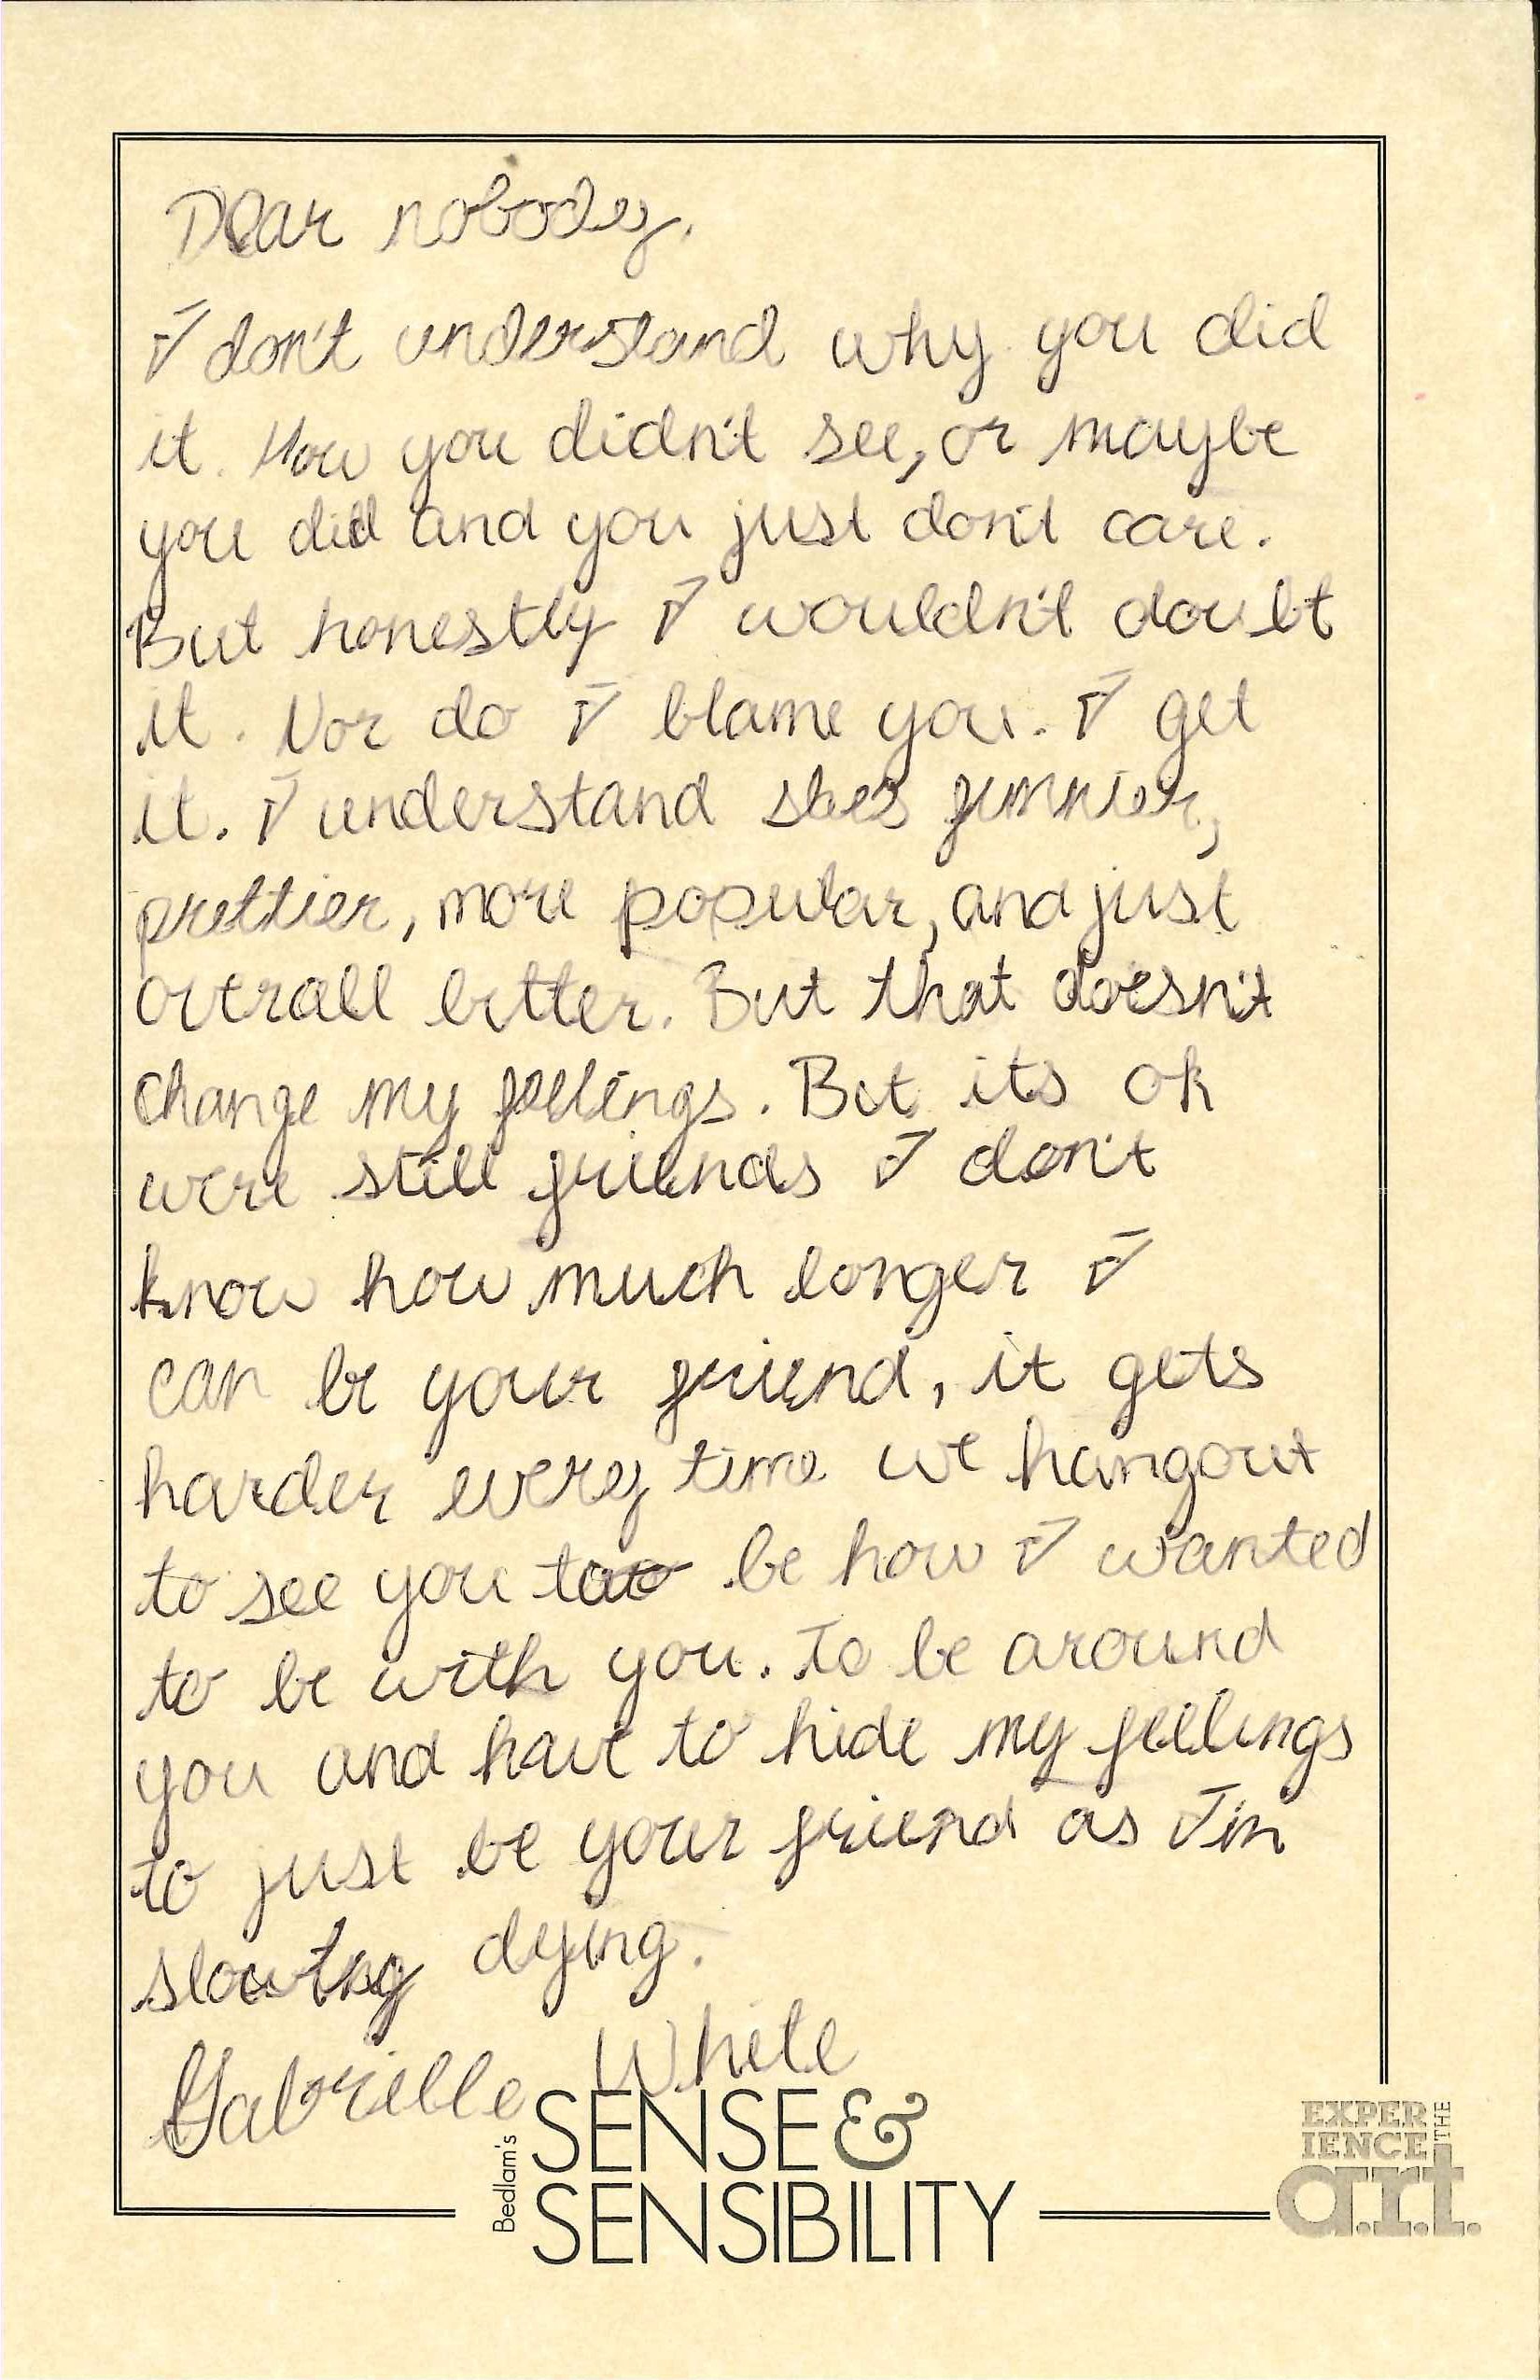 Dear nobody,
I don't understand why you did
it. How you didn't see, or maybe
you did and you just don't care.
But honestly I wouldn't doubt
it. Nor do I blame you. I get
it. I understand shes funnier,
prettier, more popular, and just
overall better. But that doesn't
change my feelings. But its ok
were still friends I don't
know how much longer I
can be your friend, it gets
harder every time we hangout
to see you be how I wanted
to be with you. To be around
you and have to hide my feelings
to just be your friend as I'm
slowly dying.
Gabrielle White
Bedlam's
SENSE &
SENSIBILITY
EXPER
IENCE THE
a.r.t.